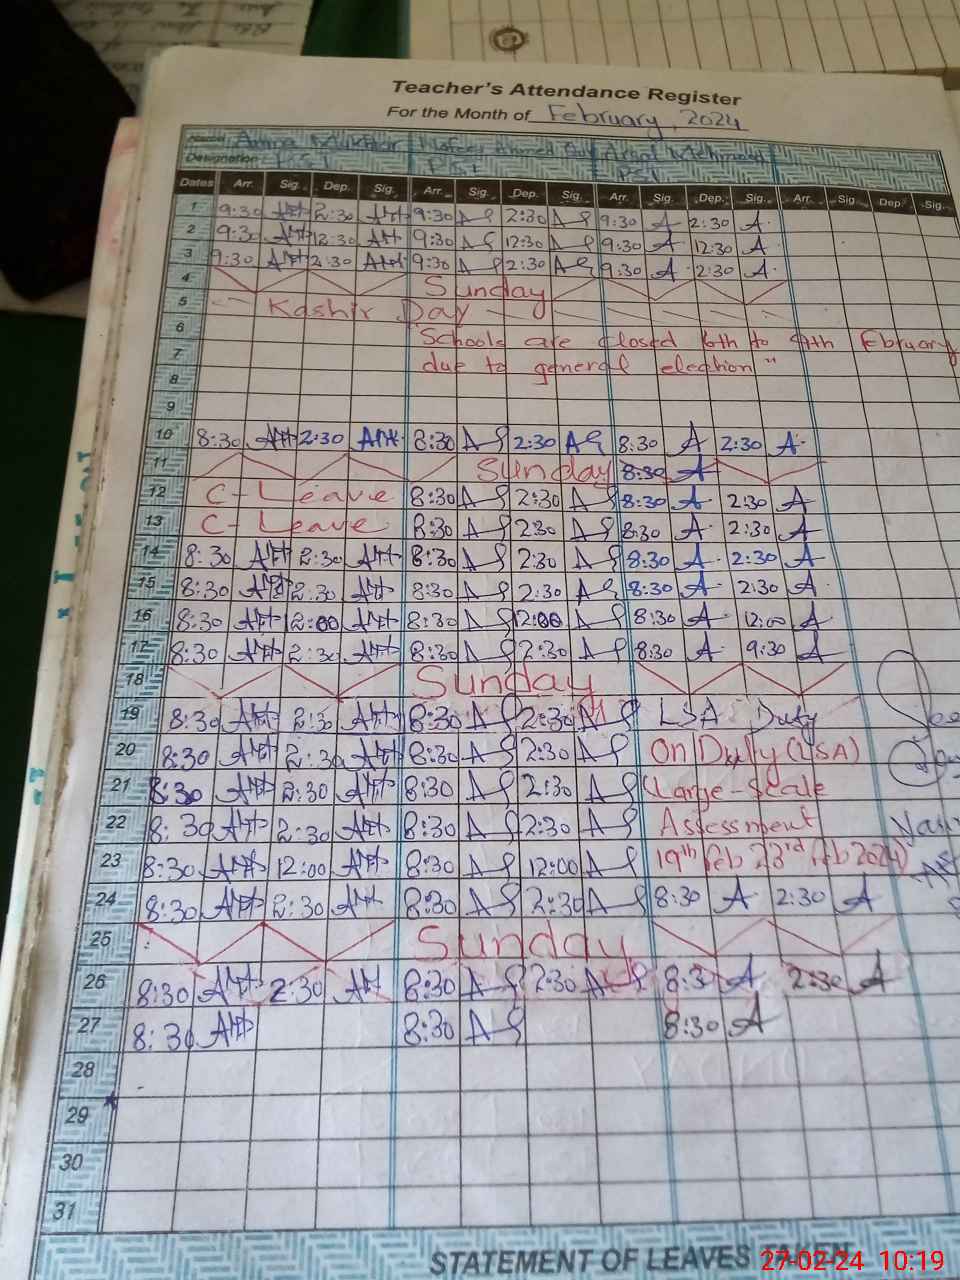 Teacher's Attendance Register
For the Month of February, 2024
Name Amna Mukhtar Nafees Ahmed Mehmood
Designation PST PST PST
Dates Arr. Sig. Dep. Sig. Arr. Sig. Dep. Sig. Arr. Sig. Dep. Sig. Arr. Sig. Dep. Sig.
1 9:30 2:30 9:30 2:30 9:30 A 2:30 A
2 9:30 12:30 9:30 12:30 9:30 A 12:30 A
3 9:30 2:30 9:30 2:30 9:30 A 2:30 A
4 Sunday
5 Kashir Day
6 Schools are closed 6th to 9th February
7 due to general election"
8
9
10 8:30 2:30 8:30 2:30 8:30 A 2:30 A
11 Sunday 8:30 A
12 C-Leave 8:30 2:30 8:30 A 2:30 A
13 C-Leave 8:30 2:30 8:30 A 2:30 A
14 8:30 2:30 8:30 2:30 8:30 A 2:30 A
15 8:30 2:30 8:30 2:30 8:30 A 2:30 A
16 8:30 12:00 8:30 12:00 8:30 A 12:00 A
17 8:30 2:30 8:30 2:30 8:30 A 9:30 A
18 Sunday
19 8:30 2:30 8:30 2:30 LSA Duty
20 8:30 2:30 8:30 2:30 On Duty (LSA)
21 8:30 2:30 8:30 2:30 (Large-Scale
22 8:30 2:30 8:30 2:30 Assessment
23 8:30 12:00 8:30 12:00 19th feb 23rd feb 2024)
24 8:30 2:30 8:30 2:30 8:30 A 2:30 A
25 Sunday
26 8:30 2:30 8:30 2:30 8:30 A 2:30 A
27 8:30 8:30 8:30 A
28
29
30
31
STATEMENT OF LEAVES TAKEN
27-02-24 10:19